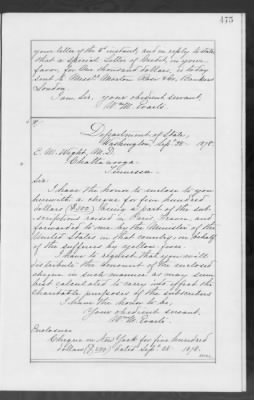 475
your letter of the 5th instant, and in reply to state
that a special Letter of Credit, in your
favor, for One thousand dollars, is to-day
sent to Messrs Morton Rose & Co, Bankers
London.
I am Sir, your obedient servant,
Wm M. Evarts.
Department of State,
Washington, Sept. 28 1878.
E. M. Wight, M.D.
Chattanooga.
Tennessee.
Sir:
I have the honor to enclose to you
herewith a cheque for five hundred
dollars ($500) being a part of the sub-
scriptions raised in Paris, France, and
forwarded to me by the Minister of the
United States in that country, in behalf
of the sufferers by yellow fever.
I have to request that you will
distribute the amount of the enclosed
cheque in such manner as may seem
best calculated to carry into effect the
charitable purposes of the subscribers
I have the honor to be,
Your obedient servant,
Wm M. Evarts.
Enclosure:
Cheque on New York for five hundred
dollars ($500) dated Sept. 28. 1878.